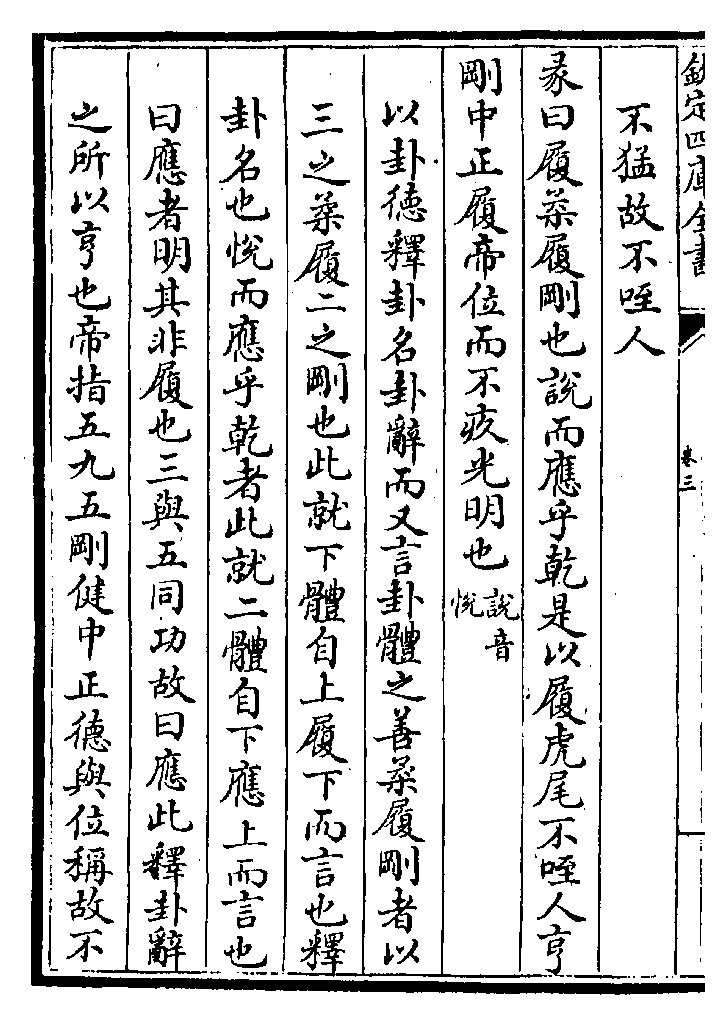 欽定四庫全書
卷三
不猛故不咥人
彖曰履柔履剛也說而應乎乾是以履虎尾不咥人亨
剛中正履帝位而不疚光明也說音悅
以卦德釋卦名卦辭而又言卦體之善柔履剛者以
三之柔履二之剛也此就下體自上履下而言也釋
卦名也悅而應乎乾者此就二體自下應上而言也
曰應者明其非履也三與五同功故曰應此釋卦辭
之所以亨也帝指五九五剛健中正德與位稱故不